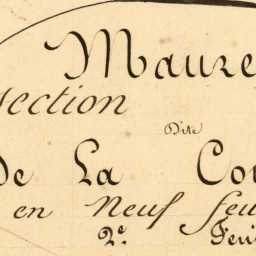 Maure
Section
Dite
De La Cou
en Neuf feu
2e. Feui